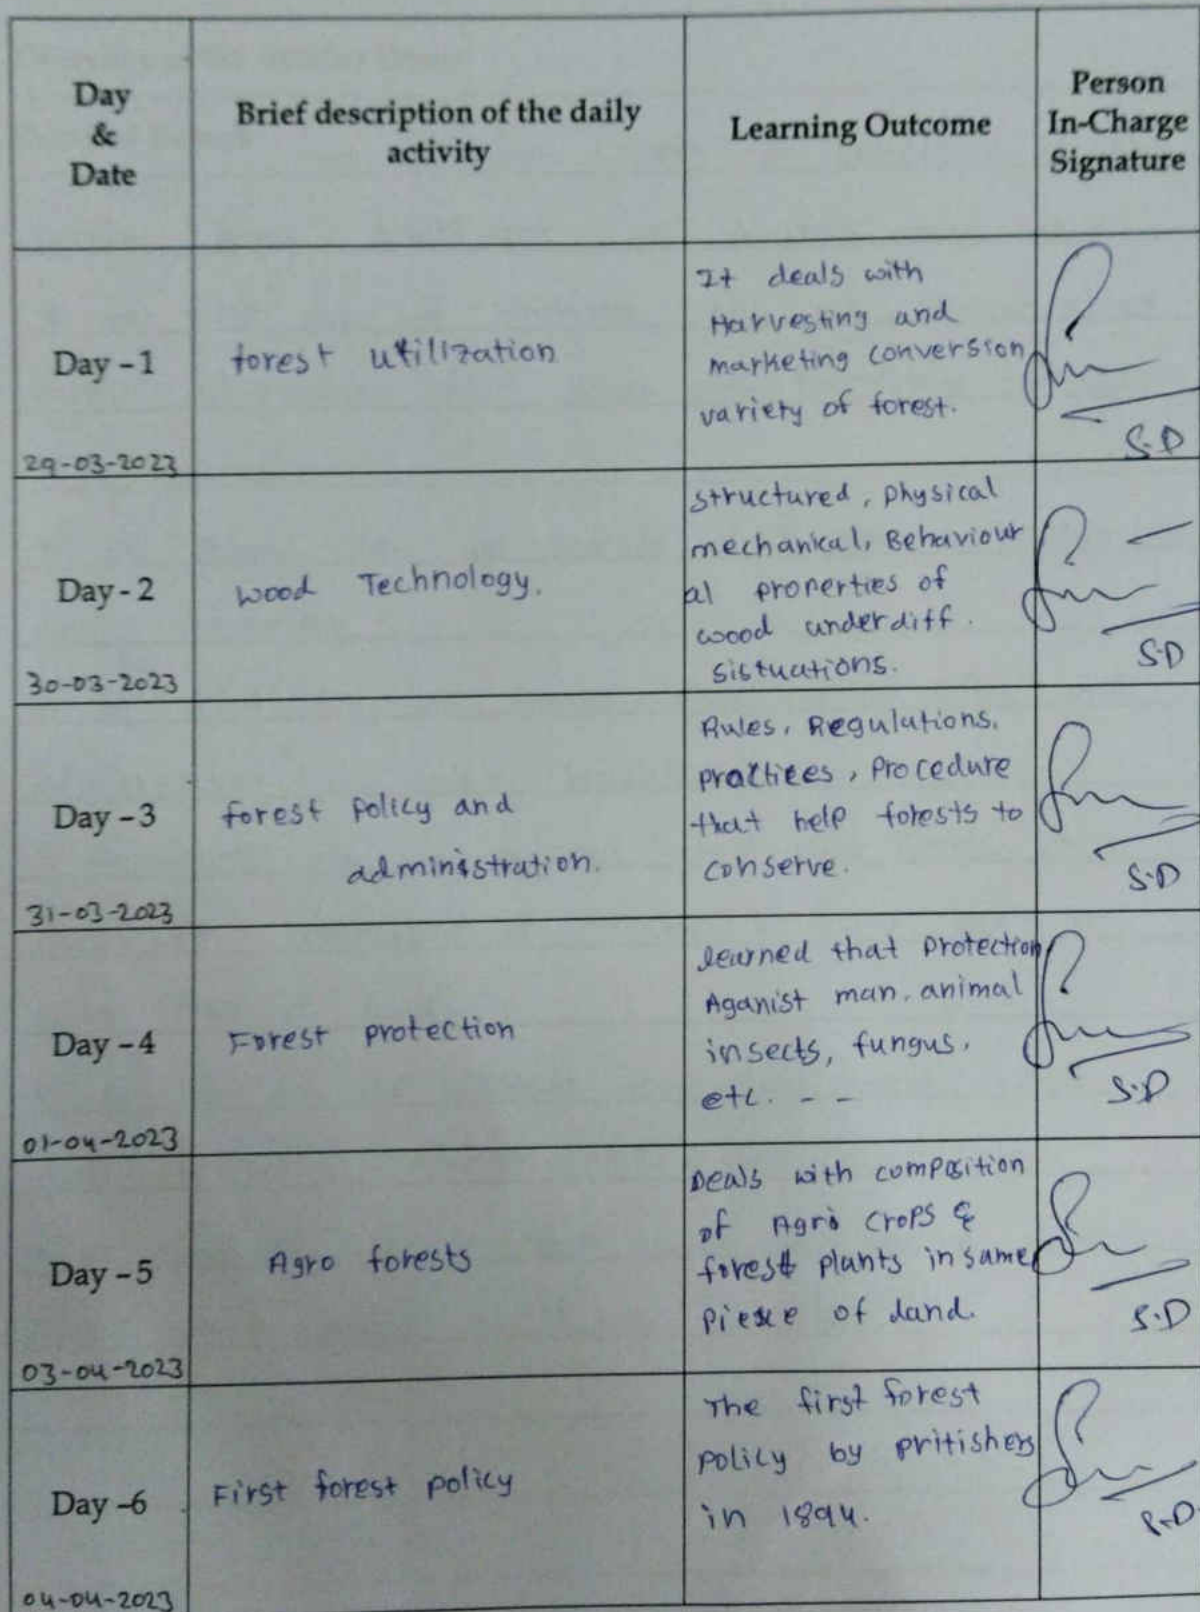 Day
&
Date
Brief description of the daily
activity
Learning Outcome
Person
In-Charge
Signature
Day - 1
29-03-2023
forest utilization
It deals with
Harvesting and
marketing conversion
variety of forest.
S.D
Day - 2
30-03-2023
wood Technology.
structured, physical
mechanical, Behaviour
al properties of
wood under diff.
sistuations.
S.D
Day - 3
31-03-2023
forest policy and
administration.
Rules, Regulations,
practices, Procedure
that help forests to
conserve.
S.D
Day - 4
01-04-2023
Forest protection
learned that protection
Aganist man, animal
insects, fungus,
etc. - -
S.D
Day - 5
03-04-2023
Agro forests
Deals with composition
of Agro crops &
forest plants in same
piece of land.
S.D
Day -6
04-04-2023
First forest policy
The first forest
policy by pritishers
in 1894.